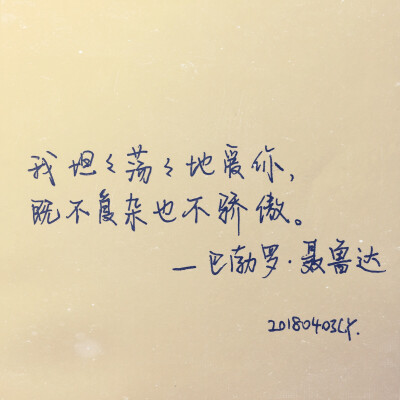 我坦々荡々地爱你,
既不复杂也不骄傲。
—巴勃罗·聂鲁达
20180403LY.